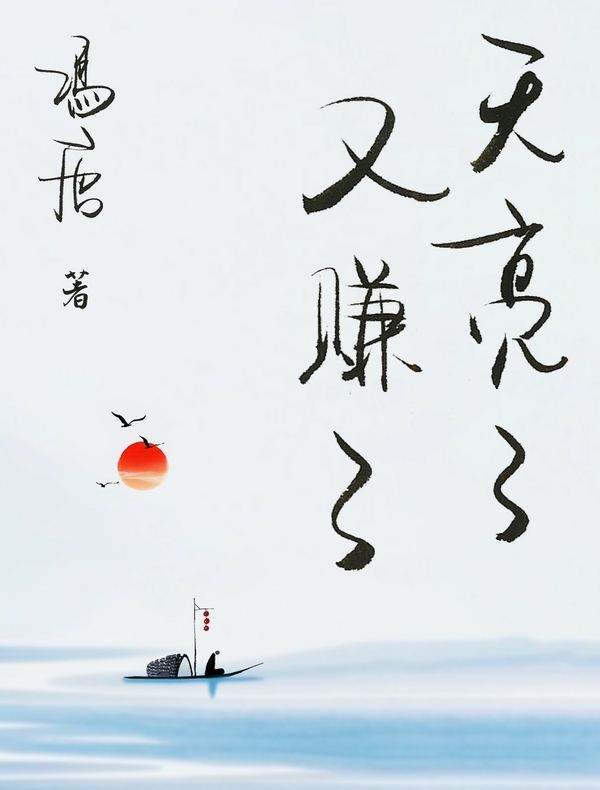 天亮了
又赚了
冯唐
著